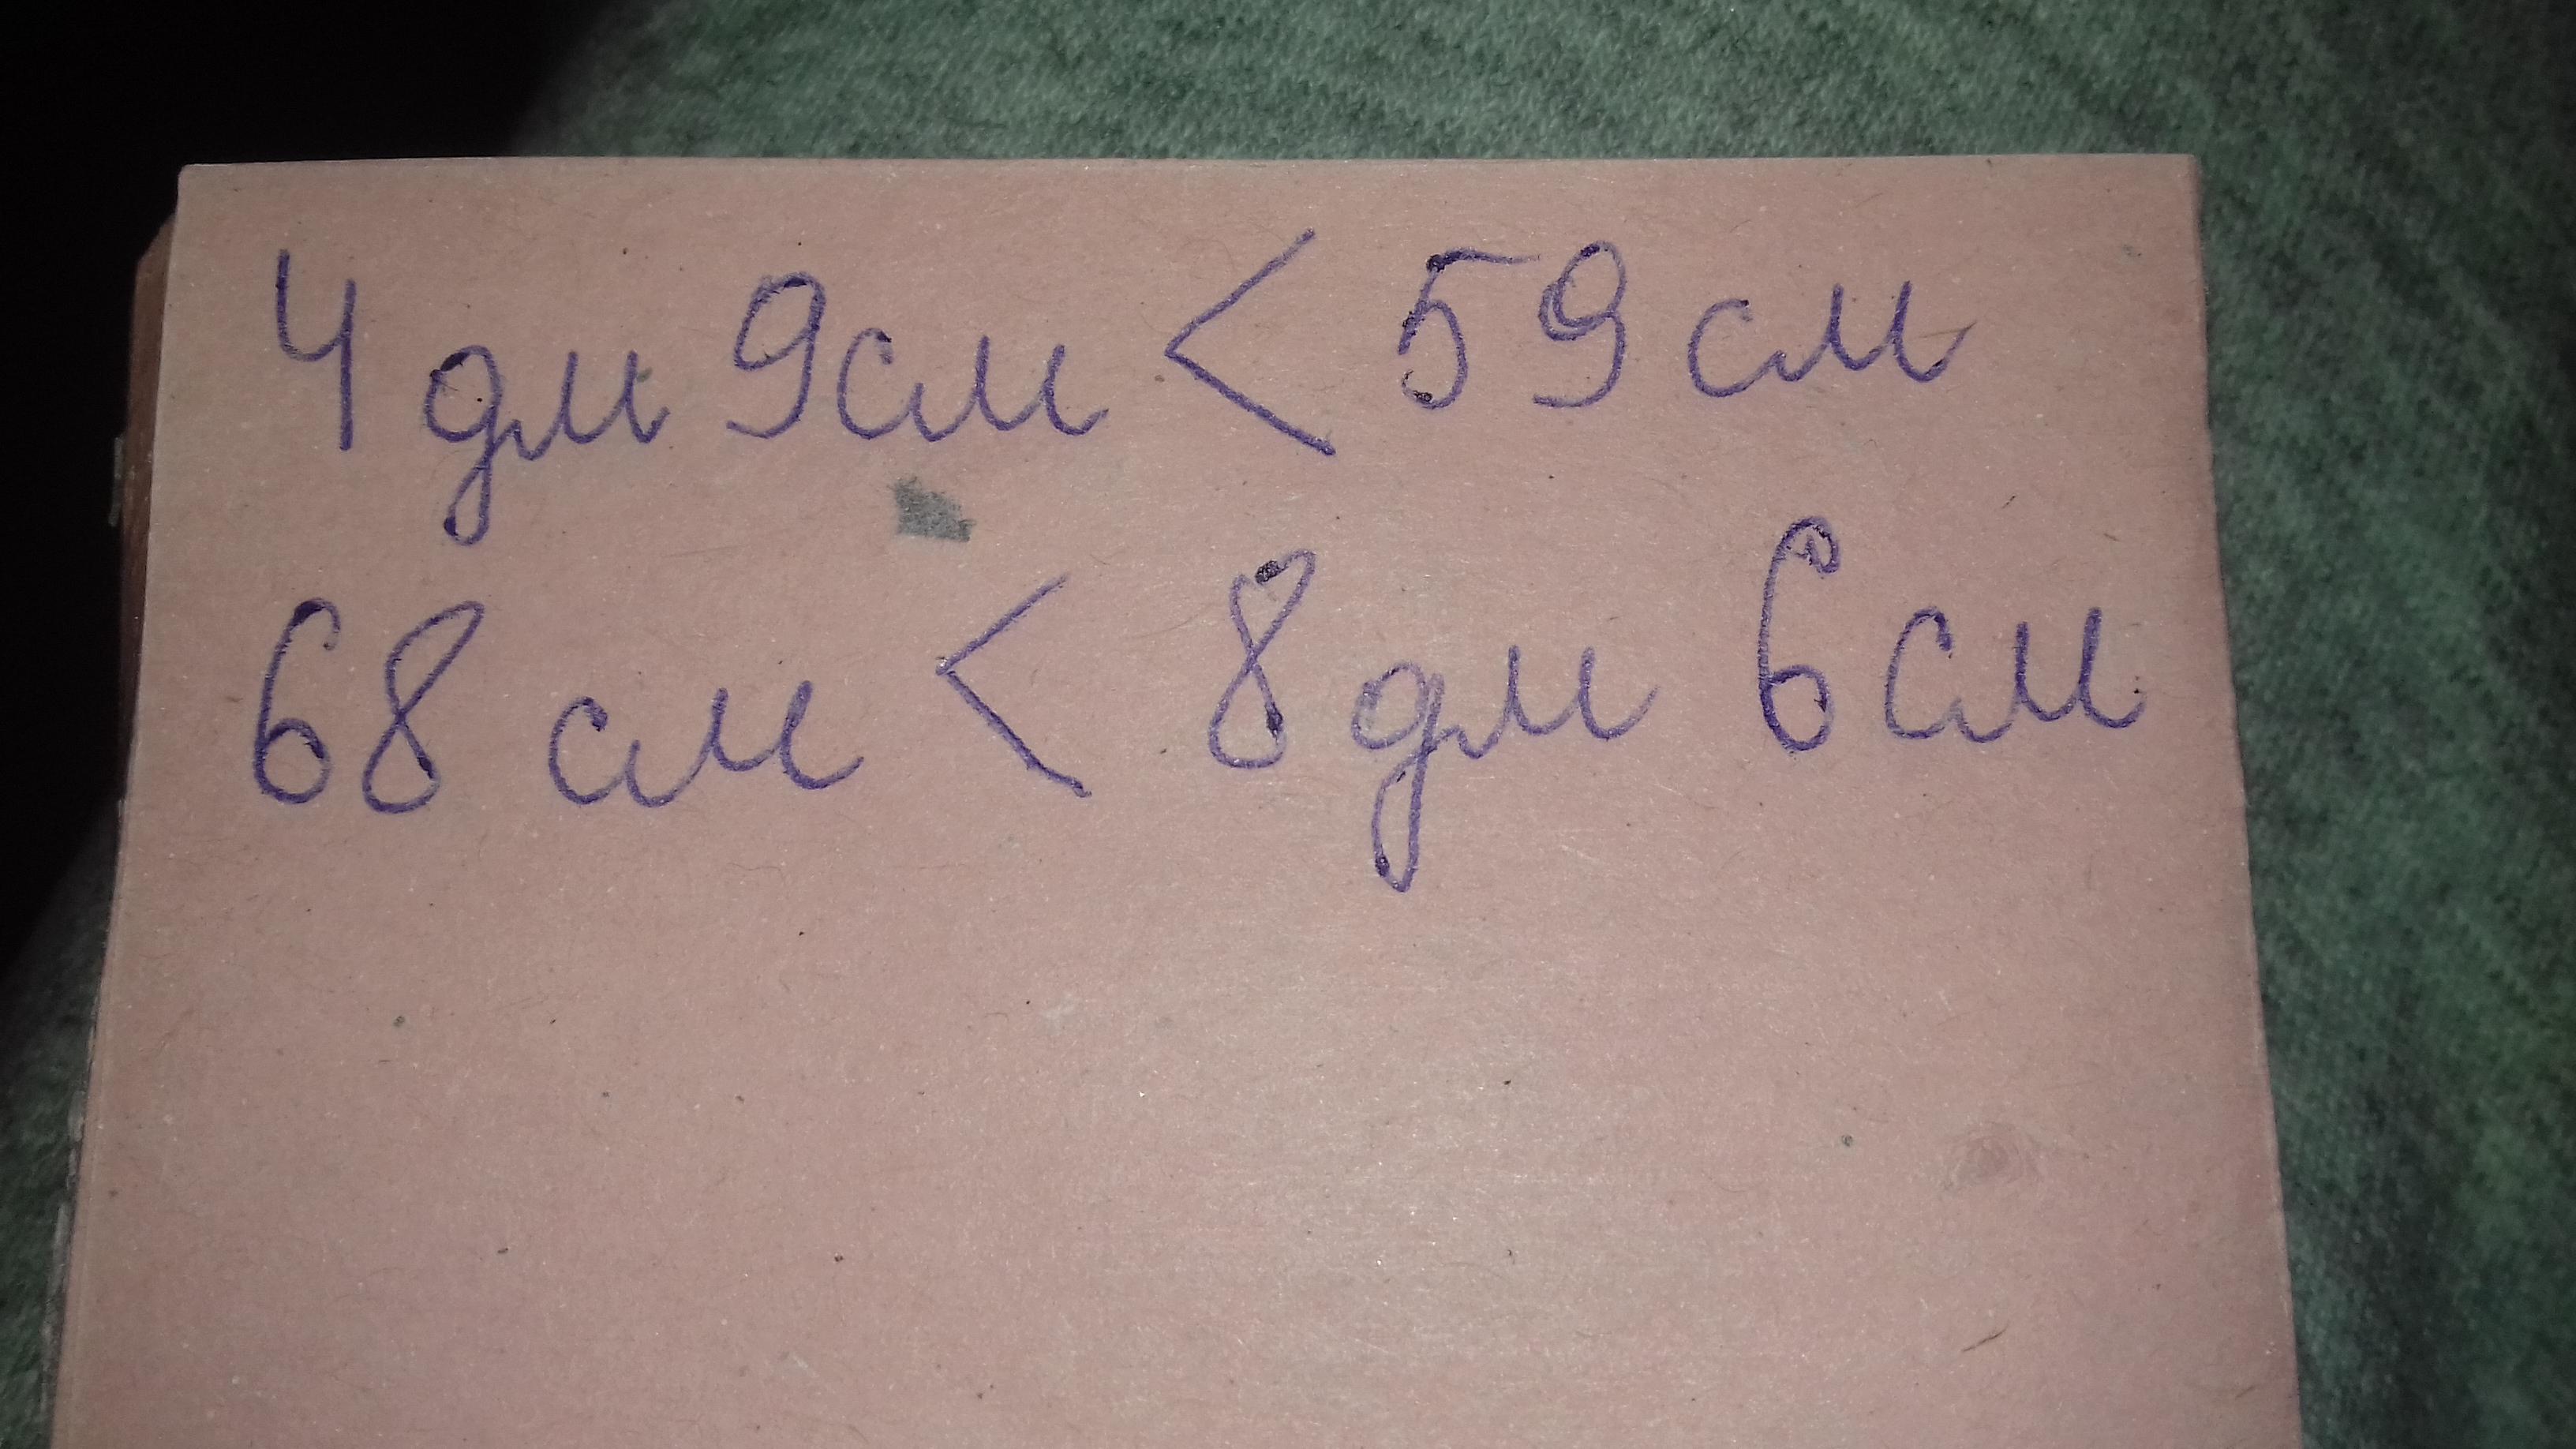 4 дм 9см < 59 см
68 см < 8 дм 6 см